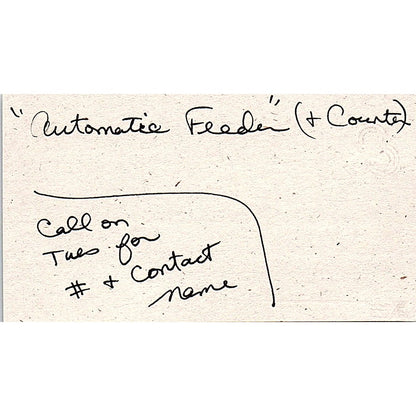 "Automatic Feeder" (+ Counter)
Call on
Tues for
# + Contact
name